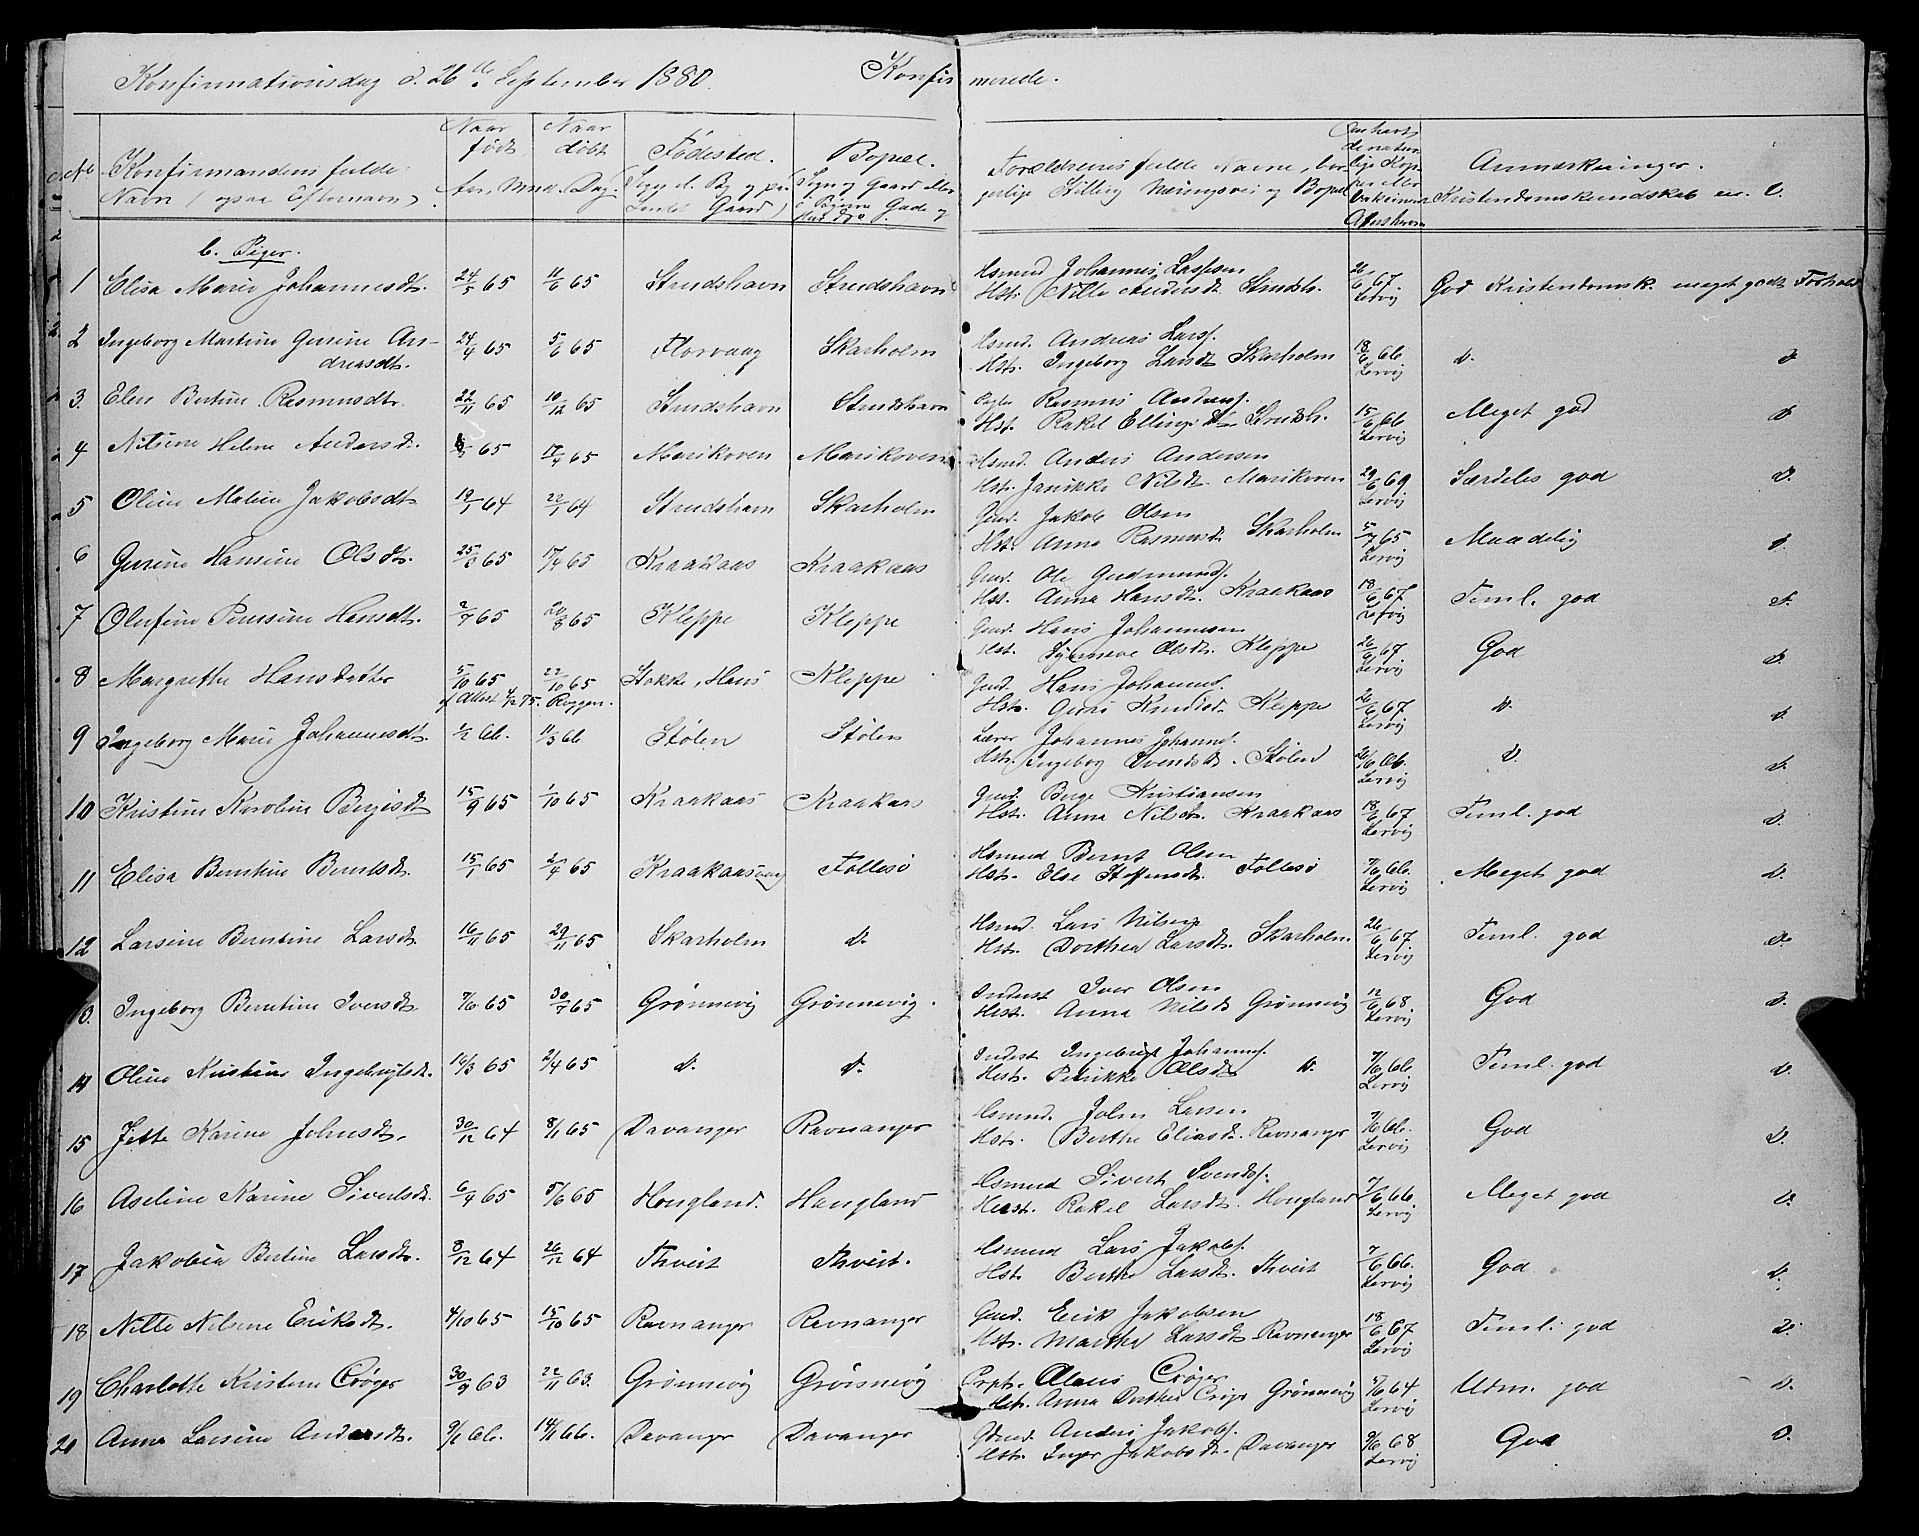 Konfirmationsdag d. 26de September 1880. Konfirmerede.
No Konfirmandens fulde Navn (ogsaa Efternavn) Naar født Naar døbt Aar, Mnd. Dag. Fødested. Bopæl. Forældrenes fulde Navne, borgerlige Stilling Næringsvei og Bopæl Anmærkninger. Kristendomskundskab m. v.
b. Piger.
1 Elisa Marie Johannesdt. 24/5 65 11/6 65 Strudshavn Strudshavn Hsmnd Johannes Lassesen 26/6 67. God Kristendomsk. meget godt Forhold
Hst. Nille Andersdt Strudsh. Lervig
2 Ingeborg Martine Gurine Andreasdt. 24/4 65 5/6 65 Florvaag Skarholm Hsmd. Andreas Larsf. 18/6 66 d. d.
Hst. Ingeborg Larsdt Skarholm Lervig
3. Elen Bertine Rasmusdtr. 22/11 65 10/12 65 Strudshavn Strudshavn Rasmus Andersf. 15/6 66 Meget god d.
Hst. Rakel Ellings dtr Strudsh. Lervig
4 Nilsine Helene Andersdt. 65 17/4 65 Marikoven Marikoven Hsmd. Anders Andersen 29/6 69 Særdeles god d.
Hst. Janikke Nilsdt Marikoven Lervig
5 Oline Maline Jakobsdt 19/1 64 22/1 64 Strudshavn Skarholm Gmd. Jakob Olsen 5/7 65 Maadelig d.
Hst. Anna Rasmusdt. Skarholm Lervig
6 Gurine Hansine Olsdt. 25/3 65 17/4 65 Kraakaas Kraakaas Gmd. Ole Gudmundsf. 18/6 67 Teml. god d.
Hst. Anna Hansdt. Kraakaas Lervig
7 Olufine Penssine Hansdt. 2/7 65 20/8 65 Kleppe Kleppe Gmd. Hans Johannesen 26/6 67 God d.
Hst. Synneve Olsdt. Kleppe Lervig
8 Margrethe Hansdatter 5/10 65 22/10 65 Stokke, Hans Kleppe Gmd. Hans Johannesf. 26/6 67 d. d.
af Attest 4/12 75. Roggen. Hst. Guri Knudsdt. Kleppe Lervig
9 Ingeborg Marie Johannesdt. 1/2 66. 11/3 66 Stølen Stølen Lærer Johannes Johannesf. 26/6 66. d. d.
Hst. Ingeborg Svendsdt. Stølen Lervig
10 Kristine Karoline Bergisdt 15/9 65 1/10 65 Kraakaas Kraakaas Gmd. Berge Kristiansen 18/6 67 Teml. god d.
Hst. Anna Nilsdt. Kraakaas Lervig
11 Elisa Berntine Berntsdt. 15/1 65 2/4 65 Kraakaasvaag Follesø Hsmnd Bernt Olsen 7/6 66. Meget god d.
Hst. Else Steffensdt. Follesø Lervig
12 Larsine Berntine Larsdt 16/11 65 29/11 65 Skarholm d. Hsmd. Lars Nilsen 26/6 67 Teml. god d.
Hst. Dorthea Larsdt. Skarholm. Lervig
13. Ingeborg Berntine Iversdt. 7/6 65 30/7 65 Grønnevig Grønnevig. Inderst Iver Olsen 12/6 68 God d.
Hst. Anna Nilsdt Grønnevig Lervig
14 Oline Kristine Ingebrigtsdt. 16/3 65 2/4 65 d. d. Inderst Ingebrigt Johannesf. 7/6 66. Teml. god d.
Hst. Perikke Olsdt d. Lervig
15 Jette Karine Johnsdt. 30/12 64 8/1 65 Davanger Ravnanger Hsmnd. John Larsen 7/6 66. God d.
Hst. Berthe Eliasdt. Ravnanger Lervig
16 Aseline Karine Sivertsdt. 6/4 65 5/6 65 Hougland. Haugland Hsmnd Sivert Svendsf. 7/6 66 Meget god d.
Hst. Rakel Larsdt. Hougland Lervig
17 Jakobia Bertine Larsdt. 8/12 64 26/12 64 Thveit Thveit. Hsmnd Lars Jakobsf. 7/6 66. God d.
Hst. Berthe Larsdt. Thveit Lervig
18 Nille Nilsine Eriksdt. 4/10 65 15/10 65 Ravnanger Ravnanger Gmd. Erik Jakobsen 18/6 67 Teml. god d.
Hst. Marthe Larsdt Ravnanger Lervig
19 Charlotte Kristine Crøger 30/9 63 22/11 63. Grønnevig Grønnevig Claus Crøger 64 Udm. god d.
Hst. Anna Dorthea Grønnevig Lervig
20 Anna Larsine Andersdt. 9/1 66. 14/1 66. Davanger Davanger Gmd. Anders Jakobsf. 9/6 68 God d.
Hst. Inger Jakobsdt. Davanger Lervig